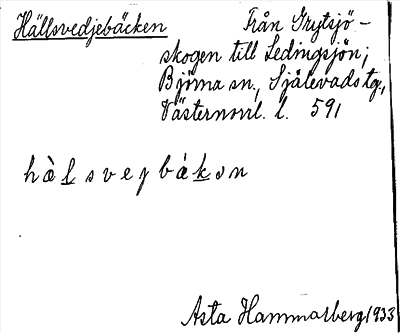 Hällsvedjebäcken Från Grytsjö-
skogen till Ledingsjön;
Björna sn., Själevads tg.,
Västernorrl. l. 591
hàlsvegbákən
Asta Hammarberg 1933